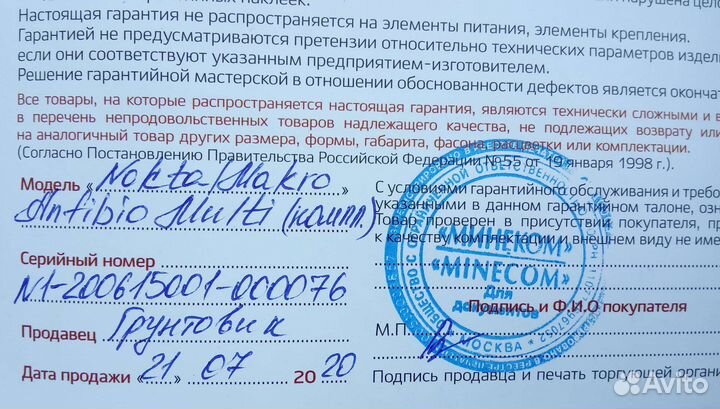 Настоящая гарантия не распространяется на элементы питания, элементы крепления.
Гарантией не предусматриваются претензии относительно технических параметров издел
если они соответствуют указанным предприятием-изготовителем.
Решение гарантийной мастерской в отношении обоснованности дефектов является окончат
Все товары, на которые распространяется настоящая гарантия, являются технически сложными и в
в перечень непродовольственных товаров надлежащего качества, не подлежащих возврату или
на аналогичный товар других размера, формы, габарита, фасона, расцветки или комплектации.
(Согласно Постановлению Правительства Российской Федерации №55 от 19 января 1998 г.).
Модель «Nokta-Makro»
Anfibio Multi (компл.)
Серийный номер
N1-200615001-000076
Продавец Грунтовик
Дата продажи «21» 07 2020
С условиями гарантийного обслуживания и требо
указанными в данном гарантийном талоне, озн
Товар проверен в присутствии покупателя, пр
к качеству, комплектации и внешнем виду не име
«МИНЕКОМ»
«MINECOM»
Для
документов
МОСКВА
Подпись и Ф.И.О покупателя
М.П.
Подпись продавца и печать торгующей органи
Avito